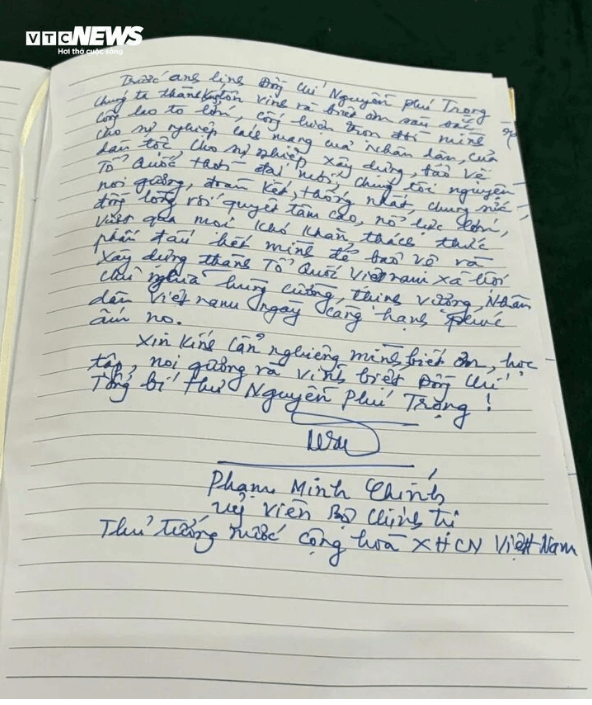 VTC NEWS
Hơi thở cuộc sống
Trước anh linh Đồng chí Nguyễn Phú Trọng
chúng ta thành kính tôn vinh và biết ơn sâu sắc
công lao to lớn, cống hiến trọn đời mình
cho sự nghiệp cách mạng của Nhân dân, của
dân tộc, cho sự nghiệp xây dựng, bảo vệ
Tổ Quốc thời đại mới. Chúng tôi nguyện
noi gương, đoàn kết, thống nhất, chung sức,
đồng lòng với quyết tâm cao, nỗ lực lớn,
vượt qua mọi khó khăn, thách thức
phấn đấu hết mình để bảo vệ và
xây dựng thành Tổ Quốc Việt nam xã hội
chủ nghĩa hùng cường, thịnh vượng, Nhân
dân Việt nam ngày càng hạnh phúc
ấm no.
Xin kính cẩn nghiêng mình, biết ơn, học
tập, noi gương và vĩnh biệt Đồng chí
Tổng bí thư Nguyễn Phú Trọng!
Phạm Minh Chính
uỷ viên Bộ Chính trị
Thủ tướng nước Cộng hoà XHCN Việt Nam